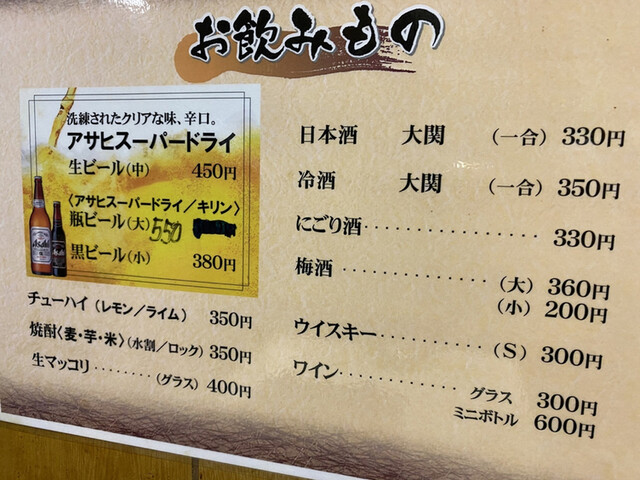 お飲みもの
洗練されたクリアな味、辛口。
アサヒスーパードライ
生ビール(中) 450円
〈アサヒスーパードライ／キリン〉
瓶ビール(大) 550
黒ビール(小) 380円
Asahi
チューハイ(レモン／ライム) 350円
焼酎〈麦・芋・米〉(水割／ロック) 350円
生マッコリ ………(グラス) 400円
日本酒 大関 (一合) 330円
冷酒 大関 (一合) 350円
にごり酒 ………………… 330円
梅酒 ……………(大) 360円
(小) 200円
ウイスキー …………(S) 300円
ワイン ………… グラス 300円
ミニボトル 600円